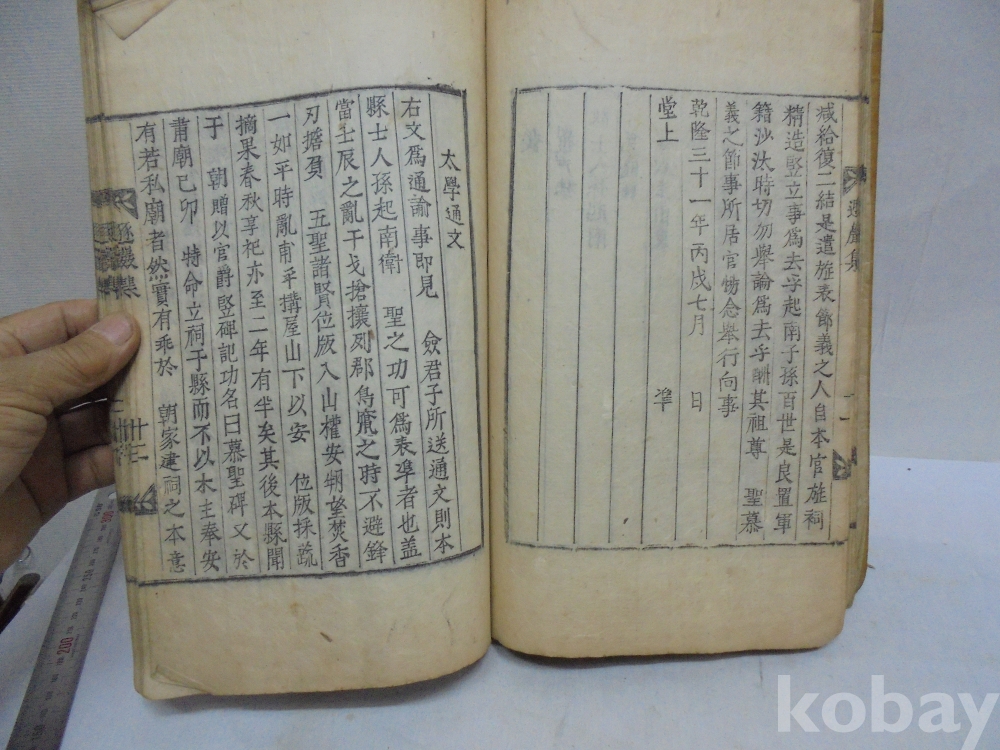 減給復二結是遣旌表節義之人自本官旌祠
精造竪立事爲去乎起南子孫百世是良置軍
籍沙汰時切勿擧論爲去乎酬其祖尊 聖慕
義之節事所居官惕念擧行向事
乾隆三十一年丙戌七月 日
堂上 準
太學通文
右文爲通諭事即見 僉君子所送通文則本
縣士人孫起南衛 聖之功可爲表準者也盖
當壬辰之亂干戈搶攘列郡鳥竄之時不避鋒
刃擔負 五聖諸賢位版入山權安朔望焚香
一如平時亂甫平搆屋山下以安 位版採蔬
摘果春秋享祀亦至二年有半矣其後本縣聞
于 朝贈以官爵竪碑記功名曰慕聖碑又於
肅廟己卯 特命立祠于縣而不以木主奉安
有若私廟者然實有乖於 朝家建祠之本意
廿三
kobay